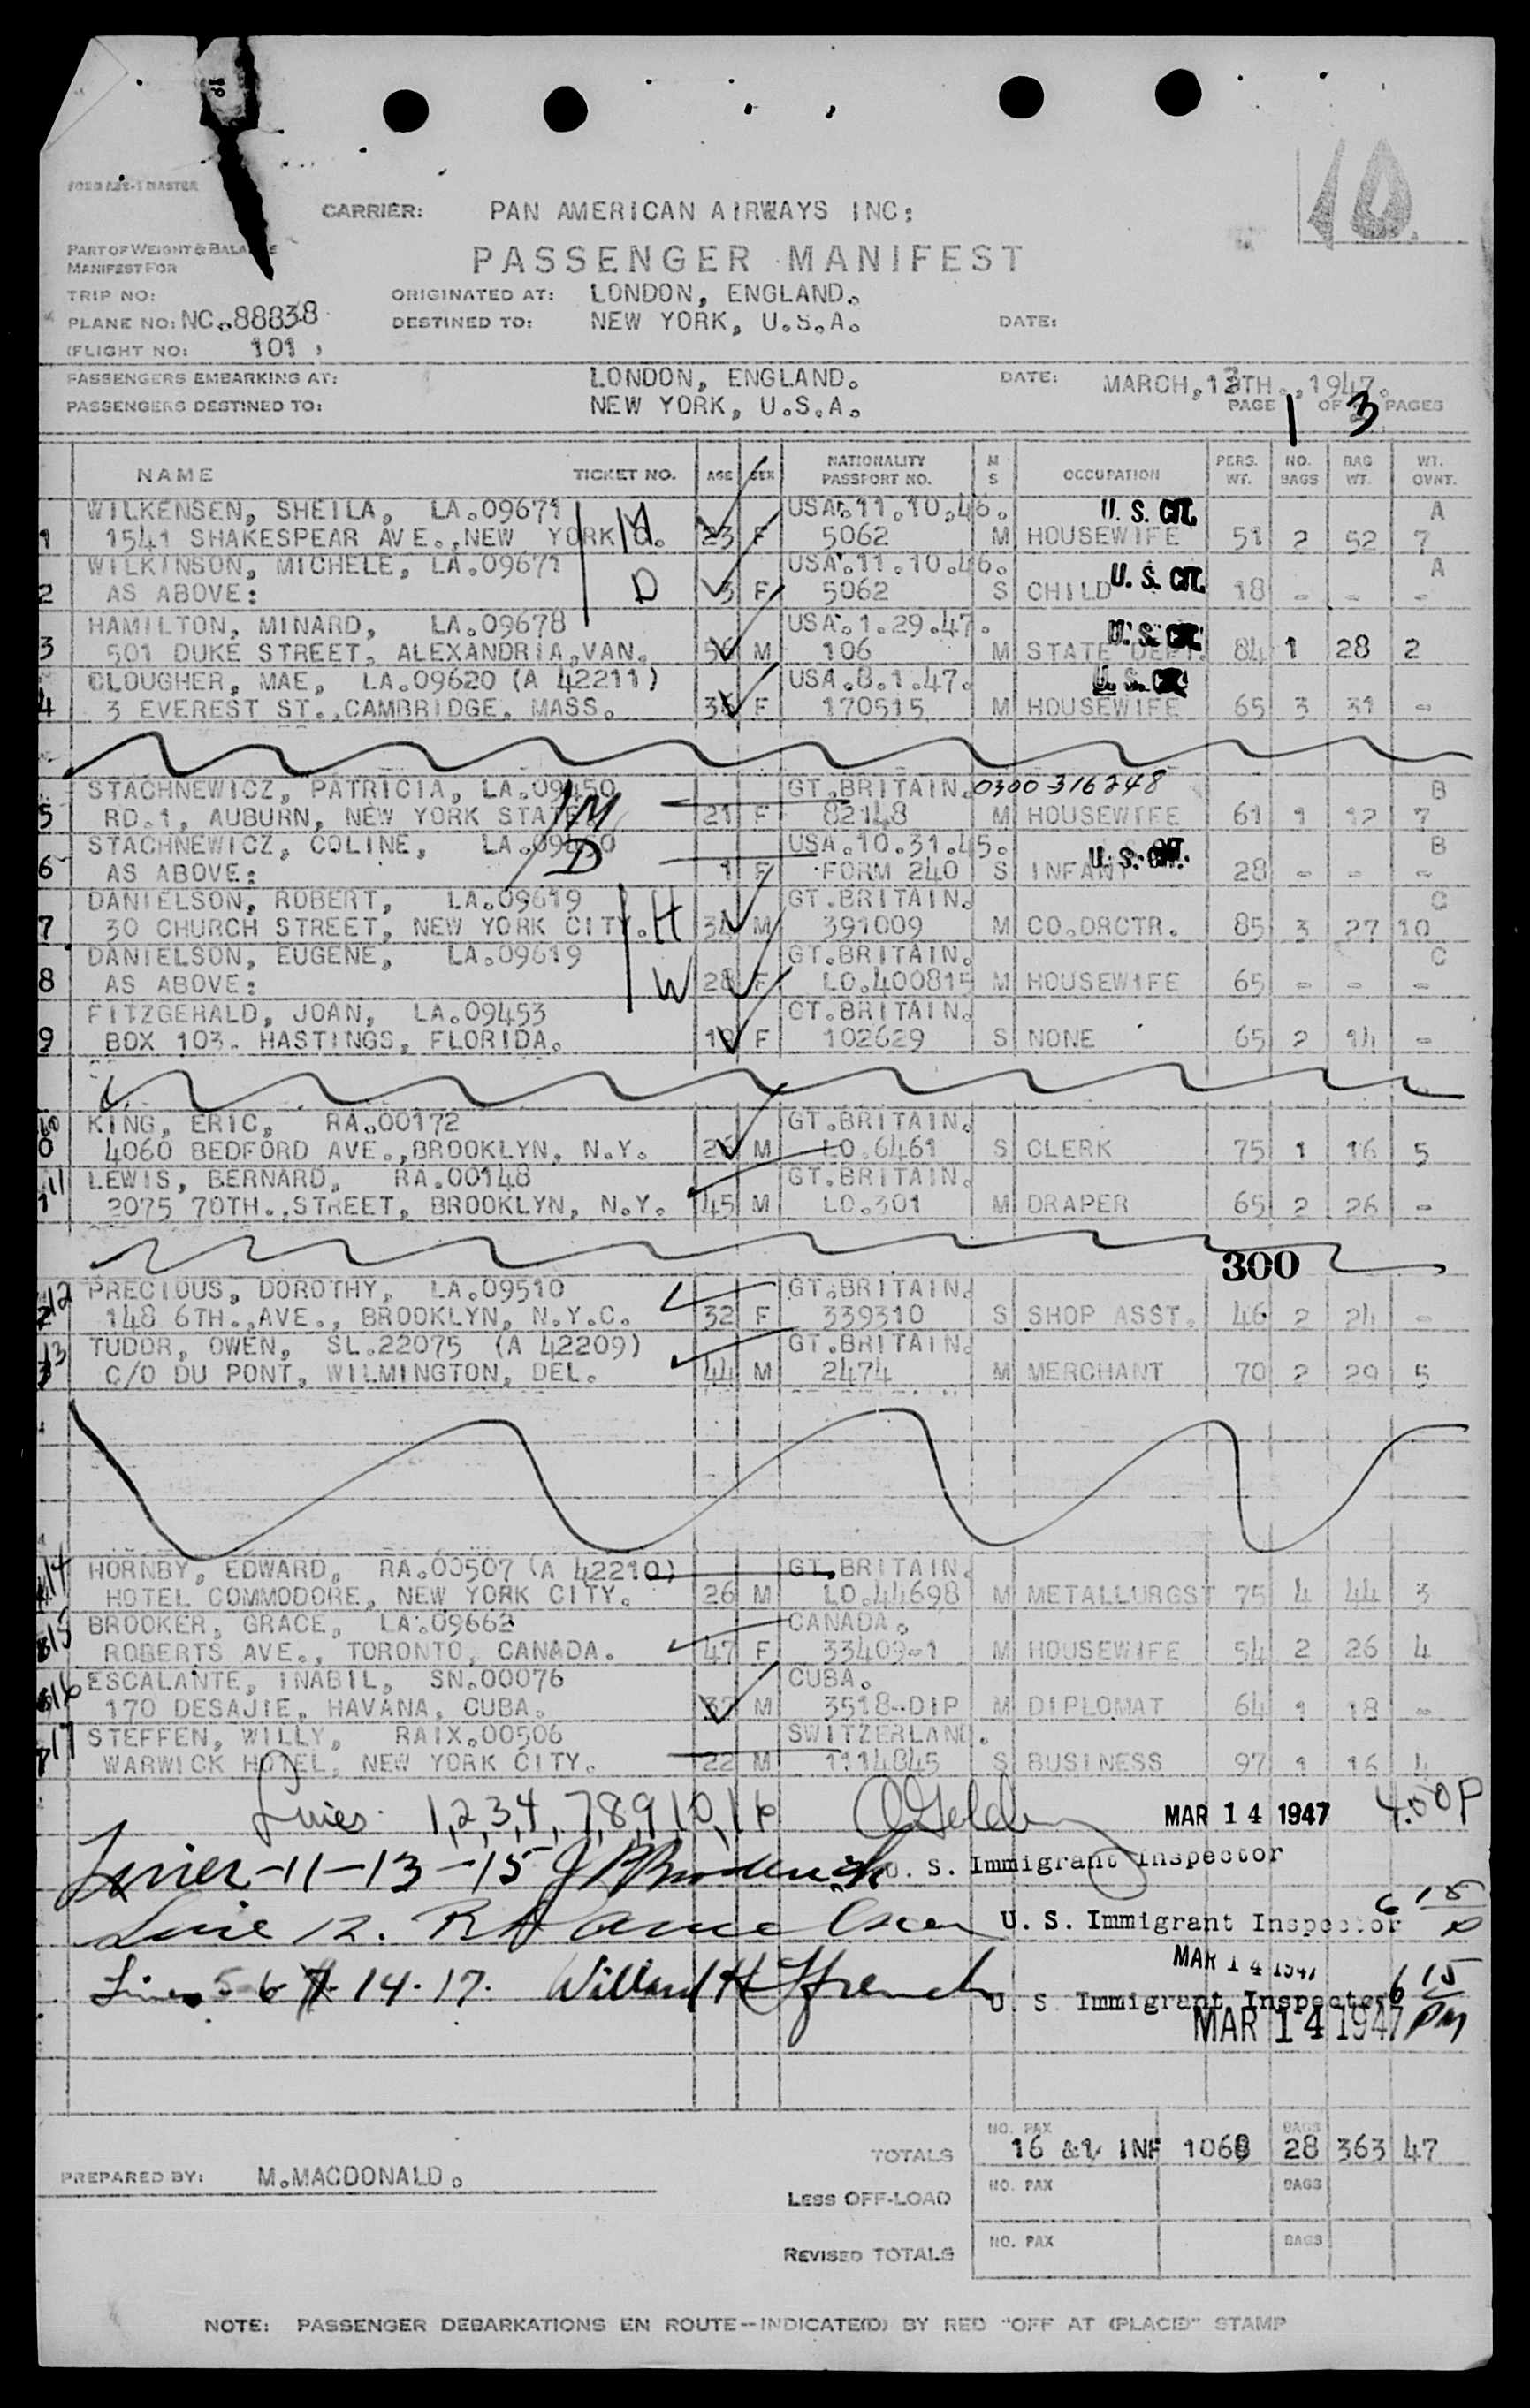 10
FORM
CARRIER: PAN AMERICAN AIRWAYS INC:
PART OF WEIGHT & BALANCE
MANIFEST FOR
PASSENGER MANIFEST
TRIP NO: ORIGINATED AT: LONDON, ENGLAND.
PLANE NO: NC.88838 DESTINED TO: NEW YORK, U.S.A. DATE:
(FLIGHT NO: 101
PASSENGERS EMBARKING AT: LONDON, ENGLAND. DATE: MARCH, 13TH.,1947.
PASSENGERS DESTINED TO: NEW YORK, U.S.A. PAGE 1 OF 3 PAGES
NAME TICKET NO. AGE SEX NATIONALITY PASSPORT NO. M S OCCUPATION PERS. WT. NO. BAGS BAG WT. WT. OVNT.
WILKENSEN, SHEILA, LA.09671 USA.11.10.46. U. S. CIT. A
1 1541 SHAKESPEAR AVE.,NEW YORK 23 F 5062 M HOUSEWIFE 51 2 52 7
WILKINSON, MICHELE, LA.09671 USA.11.10.46. U. S. CIT. A
2 AS ABOVE: D 3 F 5062 S CHILD 18 - - -
HAMILTON, MINARD, LA.09678 USA.1.29.47. U. S. CIT.
3 501 DUKE STREET, ALEXANDRIA,VAN. 56 M 106 M STATE DEPT. 84 1 28 2
CLOUGHER, MAE, LA.09620 (A 42211) USA.8.1.47. U. S. CIT.
4 3 EVEREST ST.,CAMBRIDGE, MASS. F 170515 M HOUSEWIFE 65 3 31 -
STACHNEWICZ, PATRICIA, LA.09450 GT.BRITAIN. 0300 316248 B
5 RD.1, AUBURN, NEW YORK STATE. M 21 F 82148 M HOUSEWIFE 61 1 12 7
STACHNEWICZ, COLINE, LA.09450 USA.10.31.45. U. S. CIT. B
6 AS ABOVE: D 1 F FORM 240 S INFANT 28 - - -
DANIELSON, ROBERT, LA.09619 GT.BRITAIN. C
7 30 CHURCH STREET, NEW YORK CITY. H 34 M 391009 M CO.DRCTR. 85 3 27 10
DANIELSON, EUGENE, LA.09619 GT.BRITAIN. C
8 AS ABOVE: W 28 F LO.400815 M HOUSEWIFE 65 - - -
FITZGERALD, JOAN, LA.09453 GT.BRITAIN.
9 BOX 103. HASTINGS, FLORIDA. 19 F 102629 S NONE 65 2 14 -
KING, ERIC, RA.00172 GT.BRITAIN.
0 4060 BEDFORD AVE.,BROOKLYN, N.Y. 26 M LO.6461 S CLERK 75 1 16 5
11 LEWIS, BERNARD, RA.00148 GT.BRITAIN.
1 2075 70TH.,STREET, BROOKLYN, N.Y. 45 M LO.301 M DRAPER 65 2 26 -
300
12 PRECIOUS, DOROTHY, LA.09510 GT.BRITAIN.
2 148 6TH.,AVE., BROOKLYN, N.Y.C. 32 F 339310 S SHOP ASST. 46 2 24 -
13 TUDOR, OWEN, SL.22075 (A 42209) GT.BRITAIN.
3 C/O DU PONT, WILMINGTON, DEL. 44 M 2474 M MERCHANT 70 2 29 5
14 HORNBY, EDWARD, RA.00507 (A 42210) GT.BRITAIN.
HOTEL COMMODORE, NEW YORK CITY. 26 M LO.44698 M METALLURGST 75 4 44 3
15 BROOKER, GRACE, LA.09662 CANADA.
ROBERTS AVE., TORONTO, CANADA. 47 F 33409-1 M HOUSEWIFE 54 2 26 4
16 ESCALANTE, INABIL, SN.00076 CUBA.
170 DESAJIE, HAVANA, CUBA. 37 M 3518-DIP M DIPLOMAT 64 1 18 -
17 STEFFEN, WILLY, RAIX.00506 SWITZERLAND.
WARWICK HOTEL, NEW YORK CITY. 22 M 1114845 S BUSINESS 97 1 16 4
Lines 1,2,3,4,7,8,9,10,16 MAR 14 1947 4:50P
Lines -11-13-15 U. S. Immigrant Inspector
Line 12. U. S. Immigrant Inspector 6 15 P
MAR 14 1947
Lines 5 6 7 14.17. Willard H Ffrench U. S. Immigrant Inspector 6 15 PM
MAR 14 1947
NO. PAX BAGS
TOTALS 16 &1 INF 1068 28 363 47
PREPARED BY: M.MACDONALD.
LESS OFF-LOAD NO. PAX BAGS
REVISED TOTALS NO. PAX BAGS
NOTE: PASSENGER DEBARKATIONS EN ROUTE--INDICATE(D) BY RED "OFF AT (PLACE)" STAMP